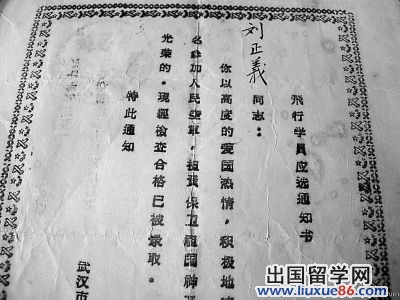 飛行学員应选通知书
刘正義
同志：
你以高度的爱国热情，积极地
名参加人民空軍，担負保卫祖国神
光荣的．現經檢查合格已被录取．
特此通知
武汉市
出国留学网
www.liuxue86.com